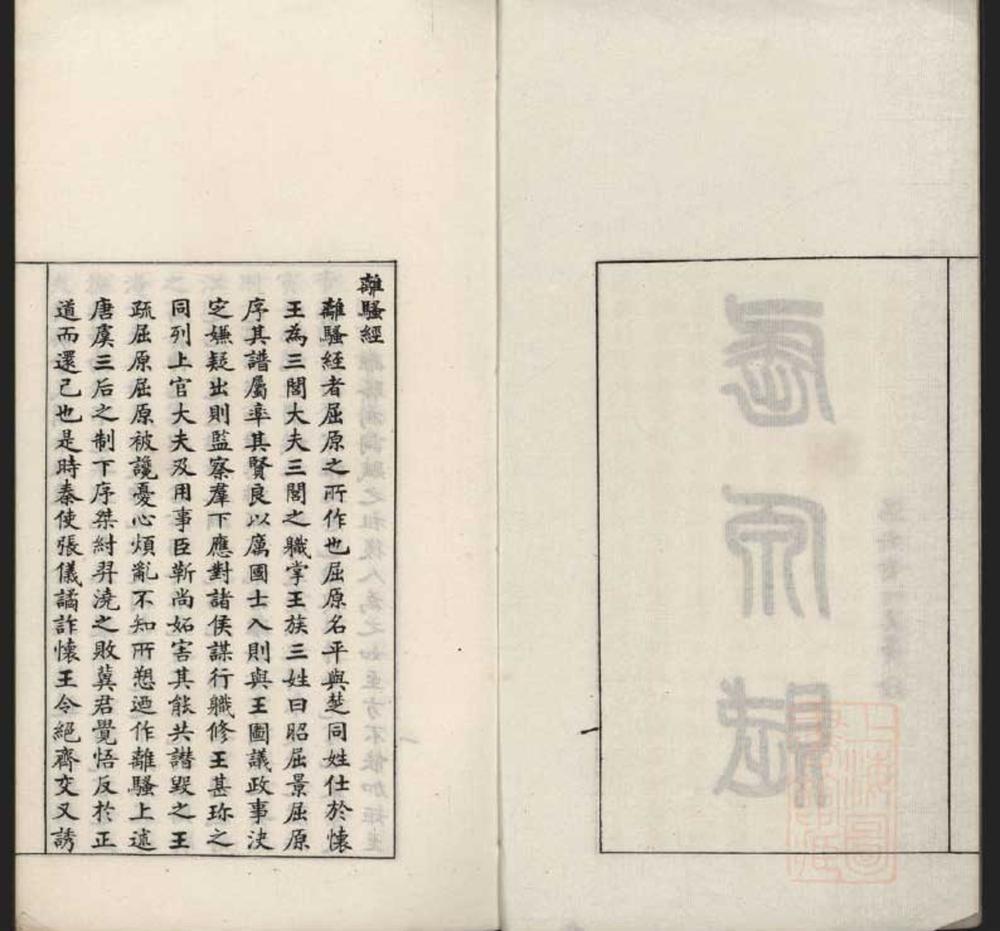 離騷經
離騷經者屈原之所作也屈原名平與楚同姓仕於懷
王為三閭大夫三閭之職掌王族三姓曰昭屈景屈原
序其譜屬率其賢良以厲國士入則與王圖議政事決
定嫌疑出則監察羣下應對諸侯謀行職修王甚珍之
同列上官大夫及用事臣靳尚妬害其能共譖毀之王
疏屈原屈原被讒憂心煩亂不知所愬迺作離騷上述
唐虞三后之制下序桀紂羿澆之敗冀君覺悟反於正
道而還己也是時秦使張儀譎詐懷王令絕齊交又誘